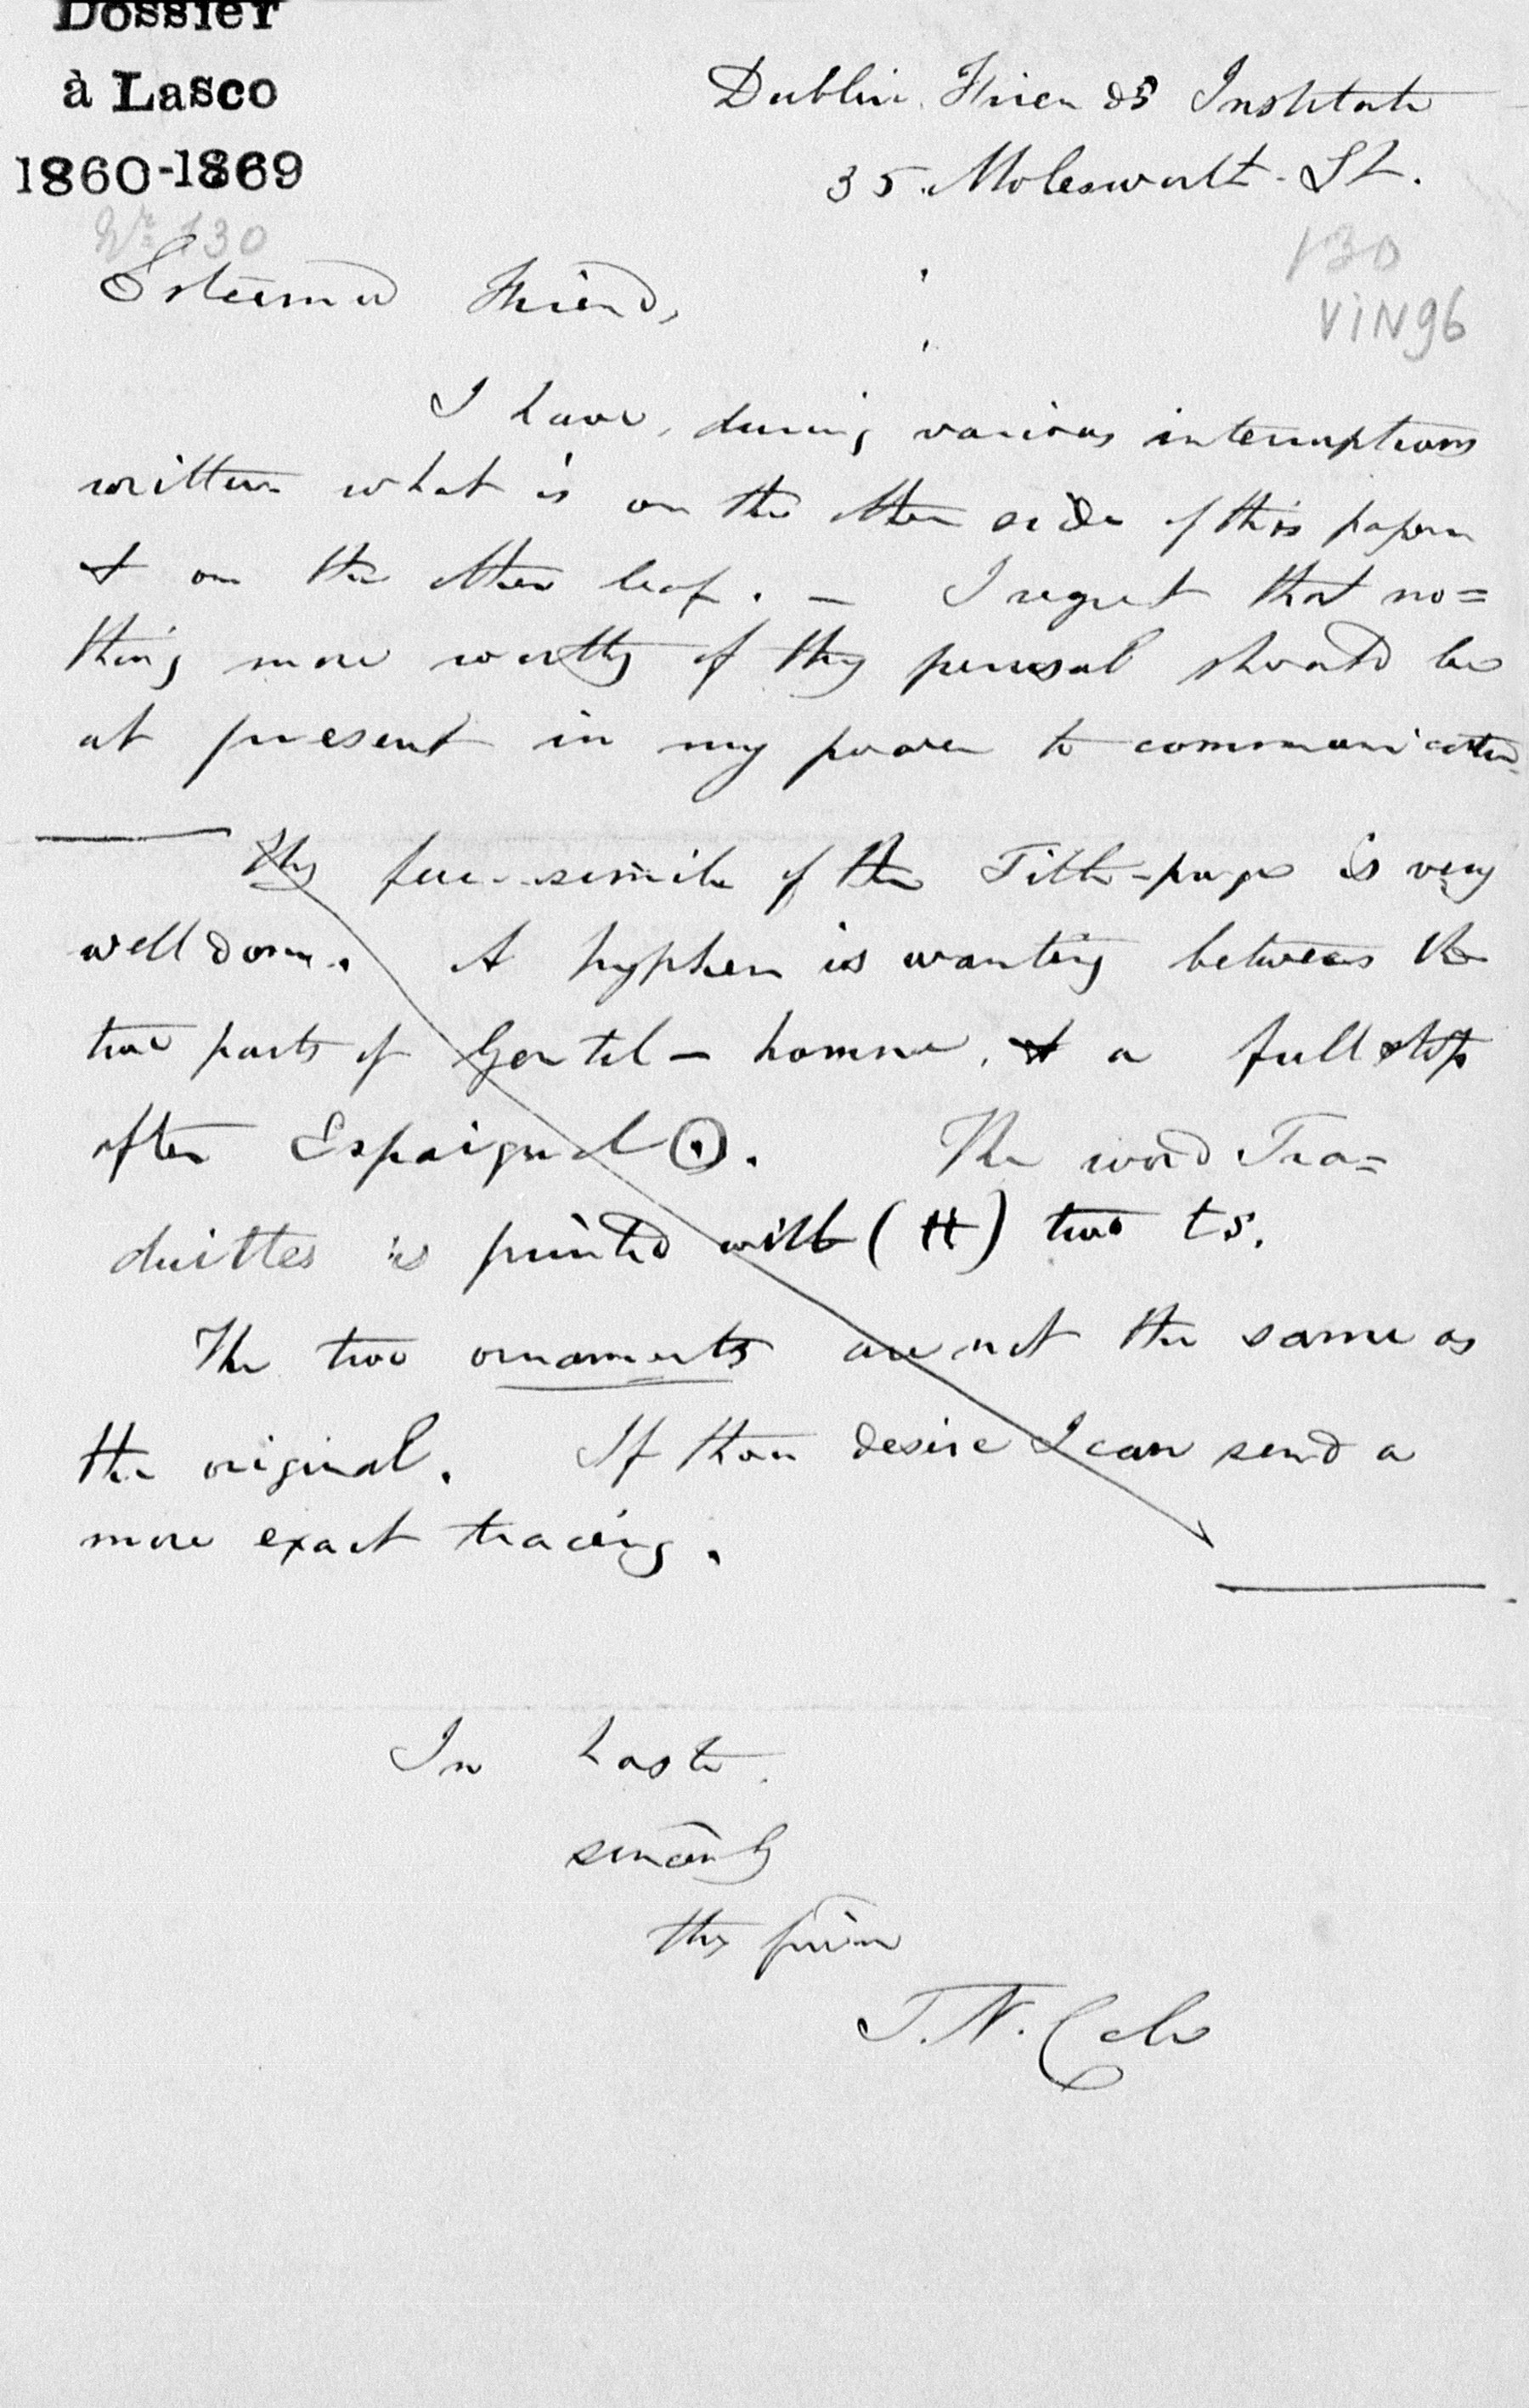 Dossier
à Lasco
1860-1869
Dublin Friends Institute
35. Molesworth. St.
Nr 130
130
VIN96
Esteemed Friend,
I have, during various interruptions
written what is on the other side of this paper
& on the other leaf. — I regret that no=
thing more worthy of thy perusal should be
at present in my power to communicate.
Thy fac-simile of the Title-page is very
well done. A hyphen is wanting between the
two parts of Gentil-homme, & a full stop
after Espaignol (.). The word Tra=
duittes is printed with (tt) two ts.
The two ornaments are not the same as
the original. If thou desire I can send a
more exact tracing.
In haste.
sincerely
thy friend